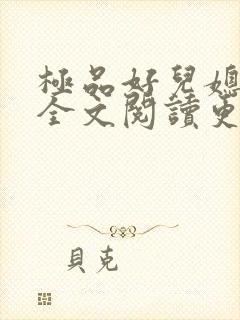 極品好兒媳
全文閱讀更
貝克